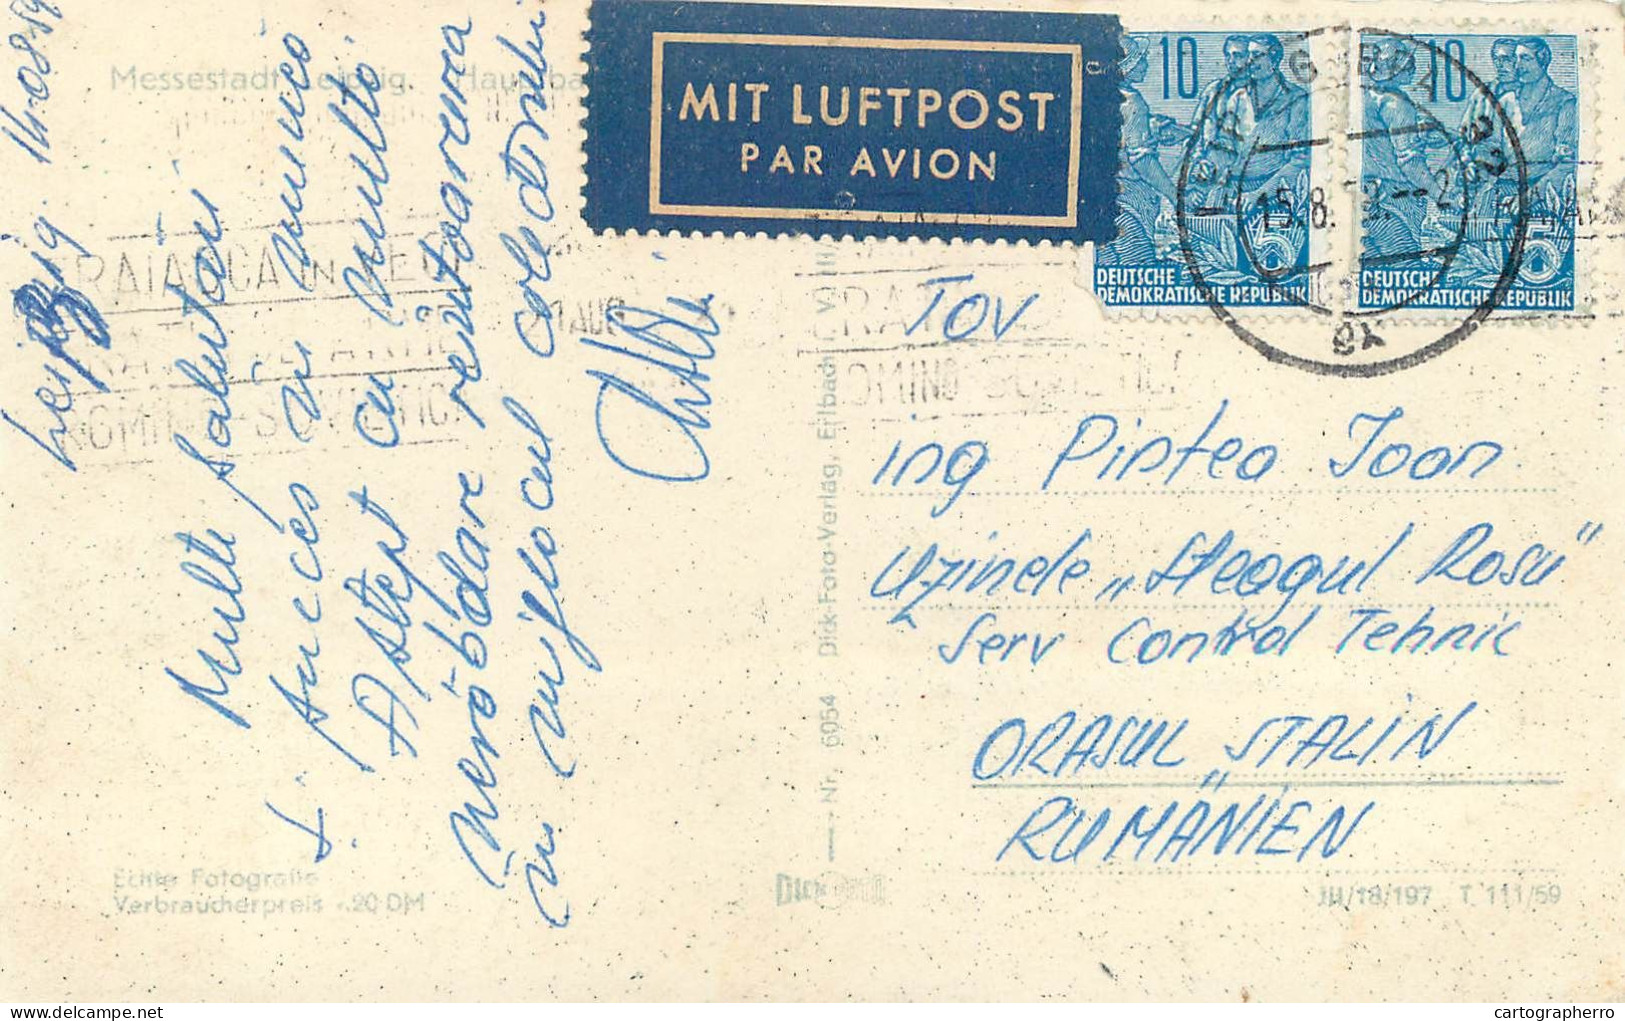 Leipzig 14.08.59
Messestadt Leipzig.
Multe salutări
succes în muncă
Aștept cu multă
nerăbdare reîntoarcerea
în mijlocul colectivului
MIT LUFTPOST
PAR AVION
10
10
DEUTSCHE
DEMOKRATISCHE REPUBLIK
5
DEUTSCHE
DEMOKRATISCHE REPUBLIK
5
LEIPZIG BPA 32
15.8.
Tov
ing Pintea Ioan
Uzinele „Steagul Rosu"
Serv Control Tehnic
ORASUL STALIN
RUMÄNIEN
ROMINO-SOVIETICI
ROMINO-SOVIETICI
Nr. 6054 Dick-Foto-Verlag, Erlbach i. V.
Echte Fotografie
Verbraucherpreis -.20 DM
DICK
III/18/197 T 111/59
cartographerro